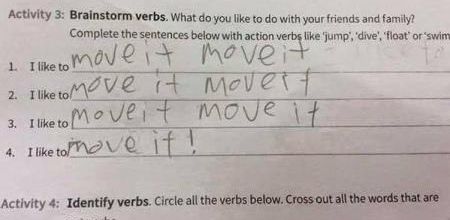 Activity 3: Brainstorm verbs. What do you like to do with your friends and family?
Complete the sentences below with action verbs like 'jump', 'dive', 'float' or 'swim
1. I like to move it move it
2. I like to move it move it
3. I like to move it move it
4. I like to move it!
Activity 4: Identify verbs. Circle all the verbs below. Cross out all the words that are